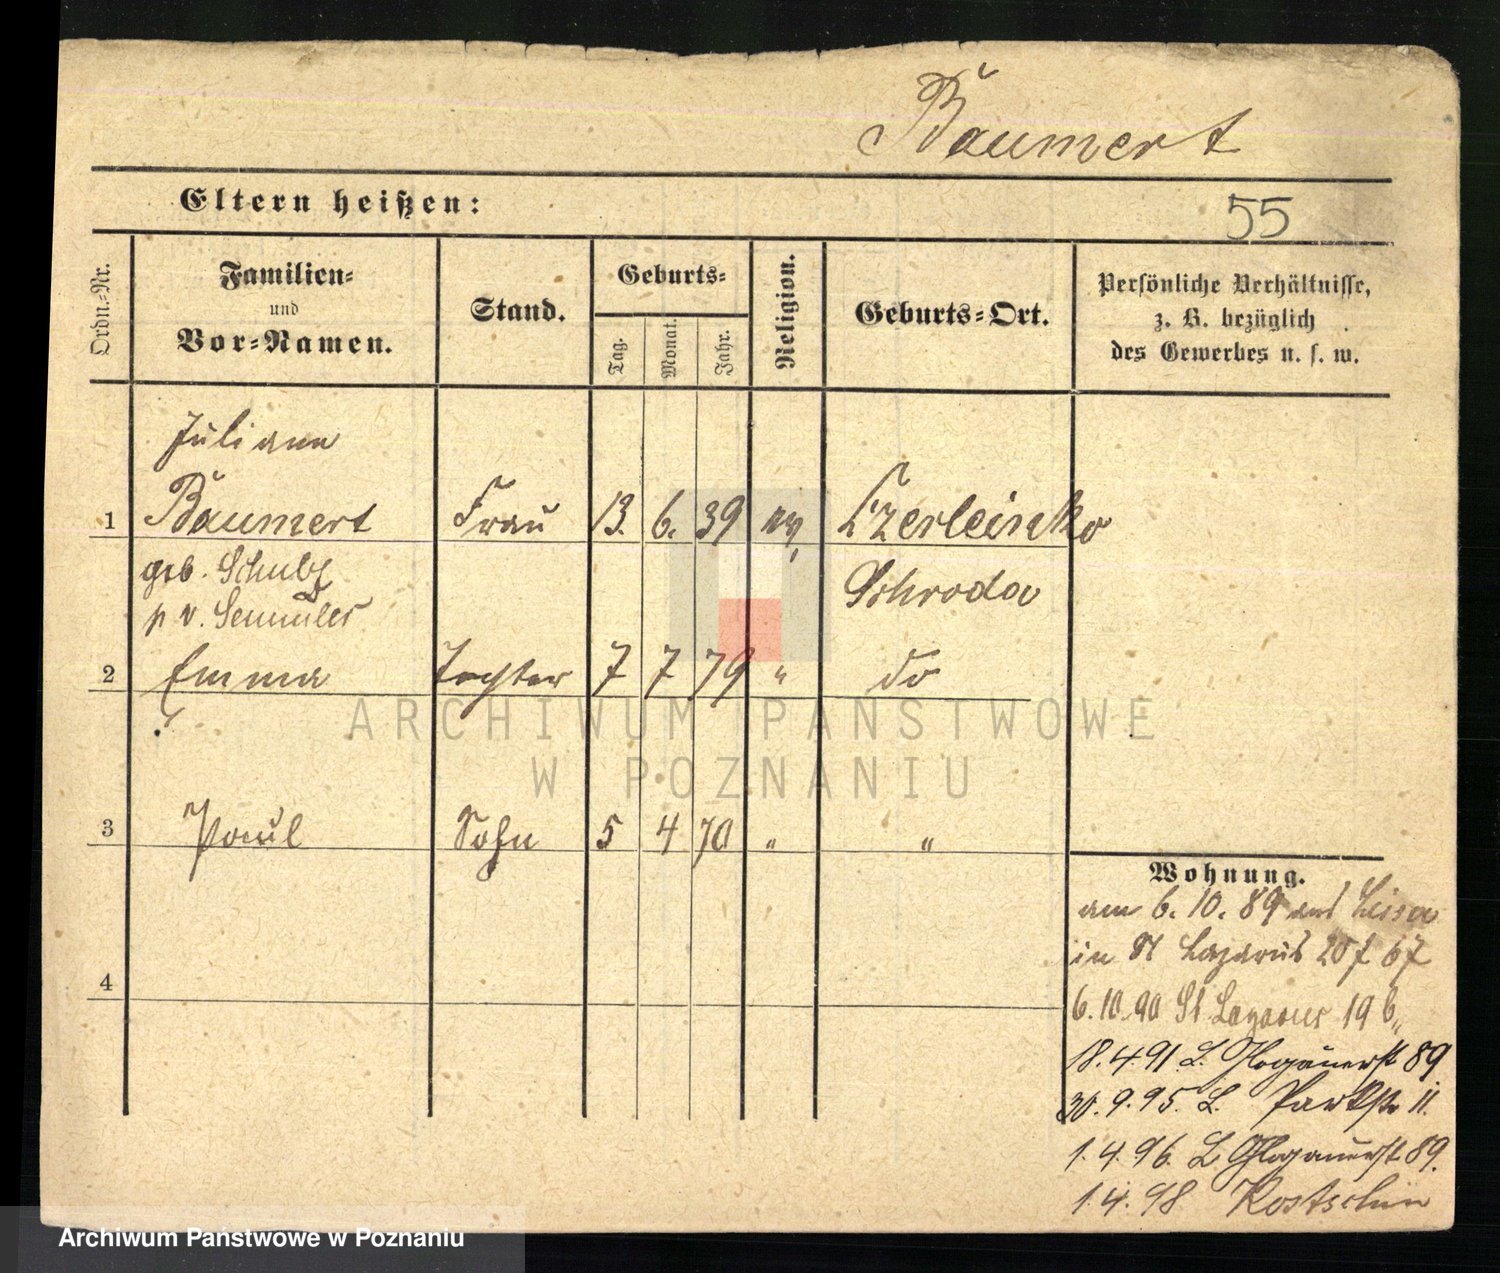 Baumert
Eltern heißen:
55
Ordn.-Nr.
Familien-
und
Vor-Namen.
Stand.
Geburts-
Tag.
Monat.
Jahr.
Religion.
Geburts-Ort.
Persönliche Verhältnisse,
z. B. bezüglich
des Gewerbes u. s. w.
Juliane
1 Baumert Frau 13. 6. 39 ev. Czerleinko
geb. Schulz Schroda
p v.
2 Emma Tochter 7 7 79 " do
ARCHIWUM PAŃSTWOWE
W POZNANIU
3 Paul Sohn 5 4 70 " "
4
Wohnung.
am 6. 10. 89 aus Lissa
in St Lazarus 67
6.10.90 St Lazarus 19 b
18.4.91 L. Glogauerst 89
30.9.95. L. Parkstr 11.
1.4.96. L Glogauerst 89.
1.4.98 Kostschin
Archiwum Państwowe w Poznaniu